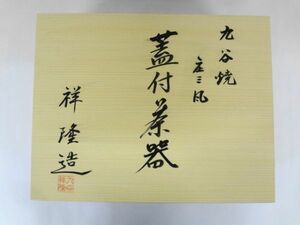 九谷焼
庄三風
蓋付茶器
祥隆造